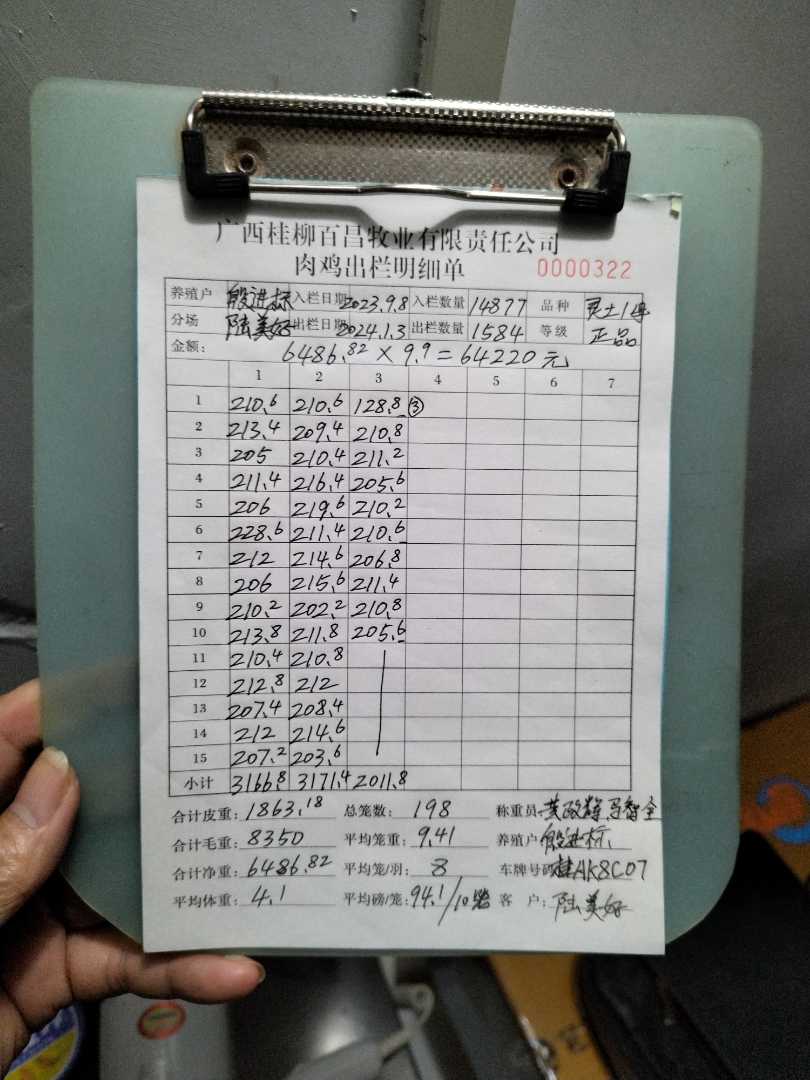 广西桂柳百昌牧业有限责任公司
肉鸡出栏明细单 0000322
养殖户 殷进标 入栏日期 2023.9.8 入栏数量 14877 品种 灵土1号
分场 陆美好 出栏日期 2024.1.3 出栏数量 1584 等级 正品
金额: 6486.82 × 9.9 = 64220元
1 2 3 4 5 6 7
1 210.6 210.6 128.8 ③
2 213.4 209.4 210.8
3 205 210.4 211.2
4 211.4 216.4 205.6
5 206 219.6 210.2
6 228.6 211.4 210.6
7 212 214.6 206.8
8 206 215.6 211.4
9 210.2 202.2 210.8
10 213.8 211.8 205.6
11 210.4 210.8
12 212.8 212
13 207.4 208.4
14 212 214.6
15 207.2 203.6
小计 3166.8 3171.4 2011.8
合计皮重: 1863.18 总笼数: 198 称重员 黄政辉 马智全
合计毛重: 8350 平均笼重: 9.41 养殖户 殷进标
合计净重: 6486.82 平均笼/羽: 8 车牌号码 桂AK8C07
平均体重: 4.1 平均磅/笼: 94.1/10笼 客户: 陆美好